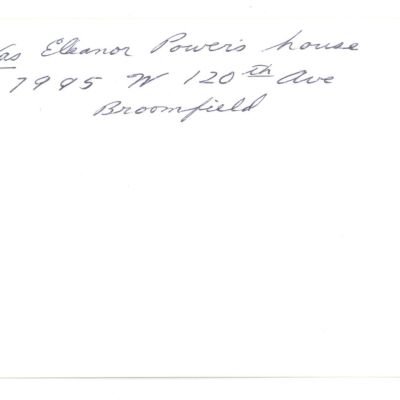 Was Eleanor Power's house
7995 W 120th Ave
Broomfield